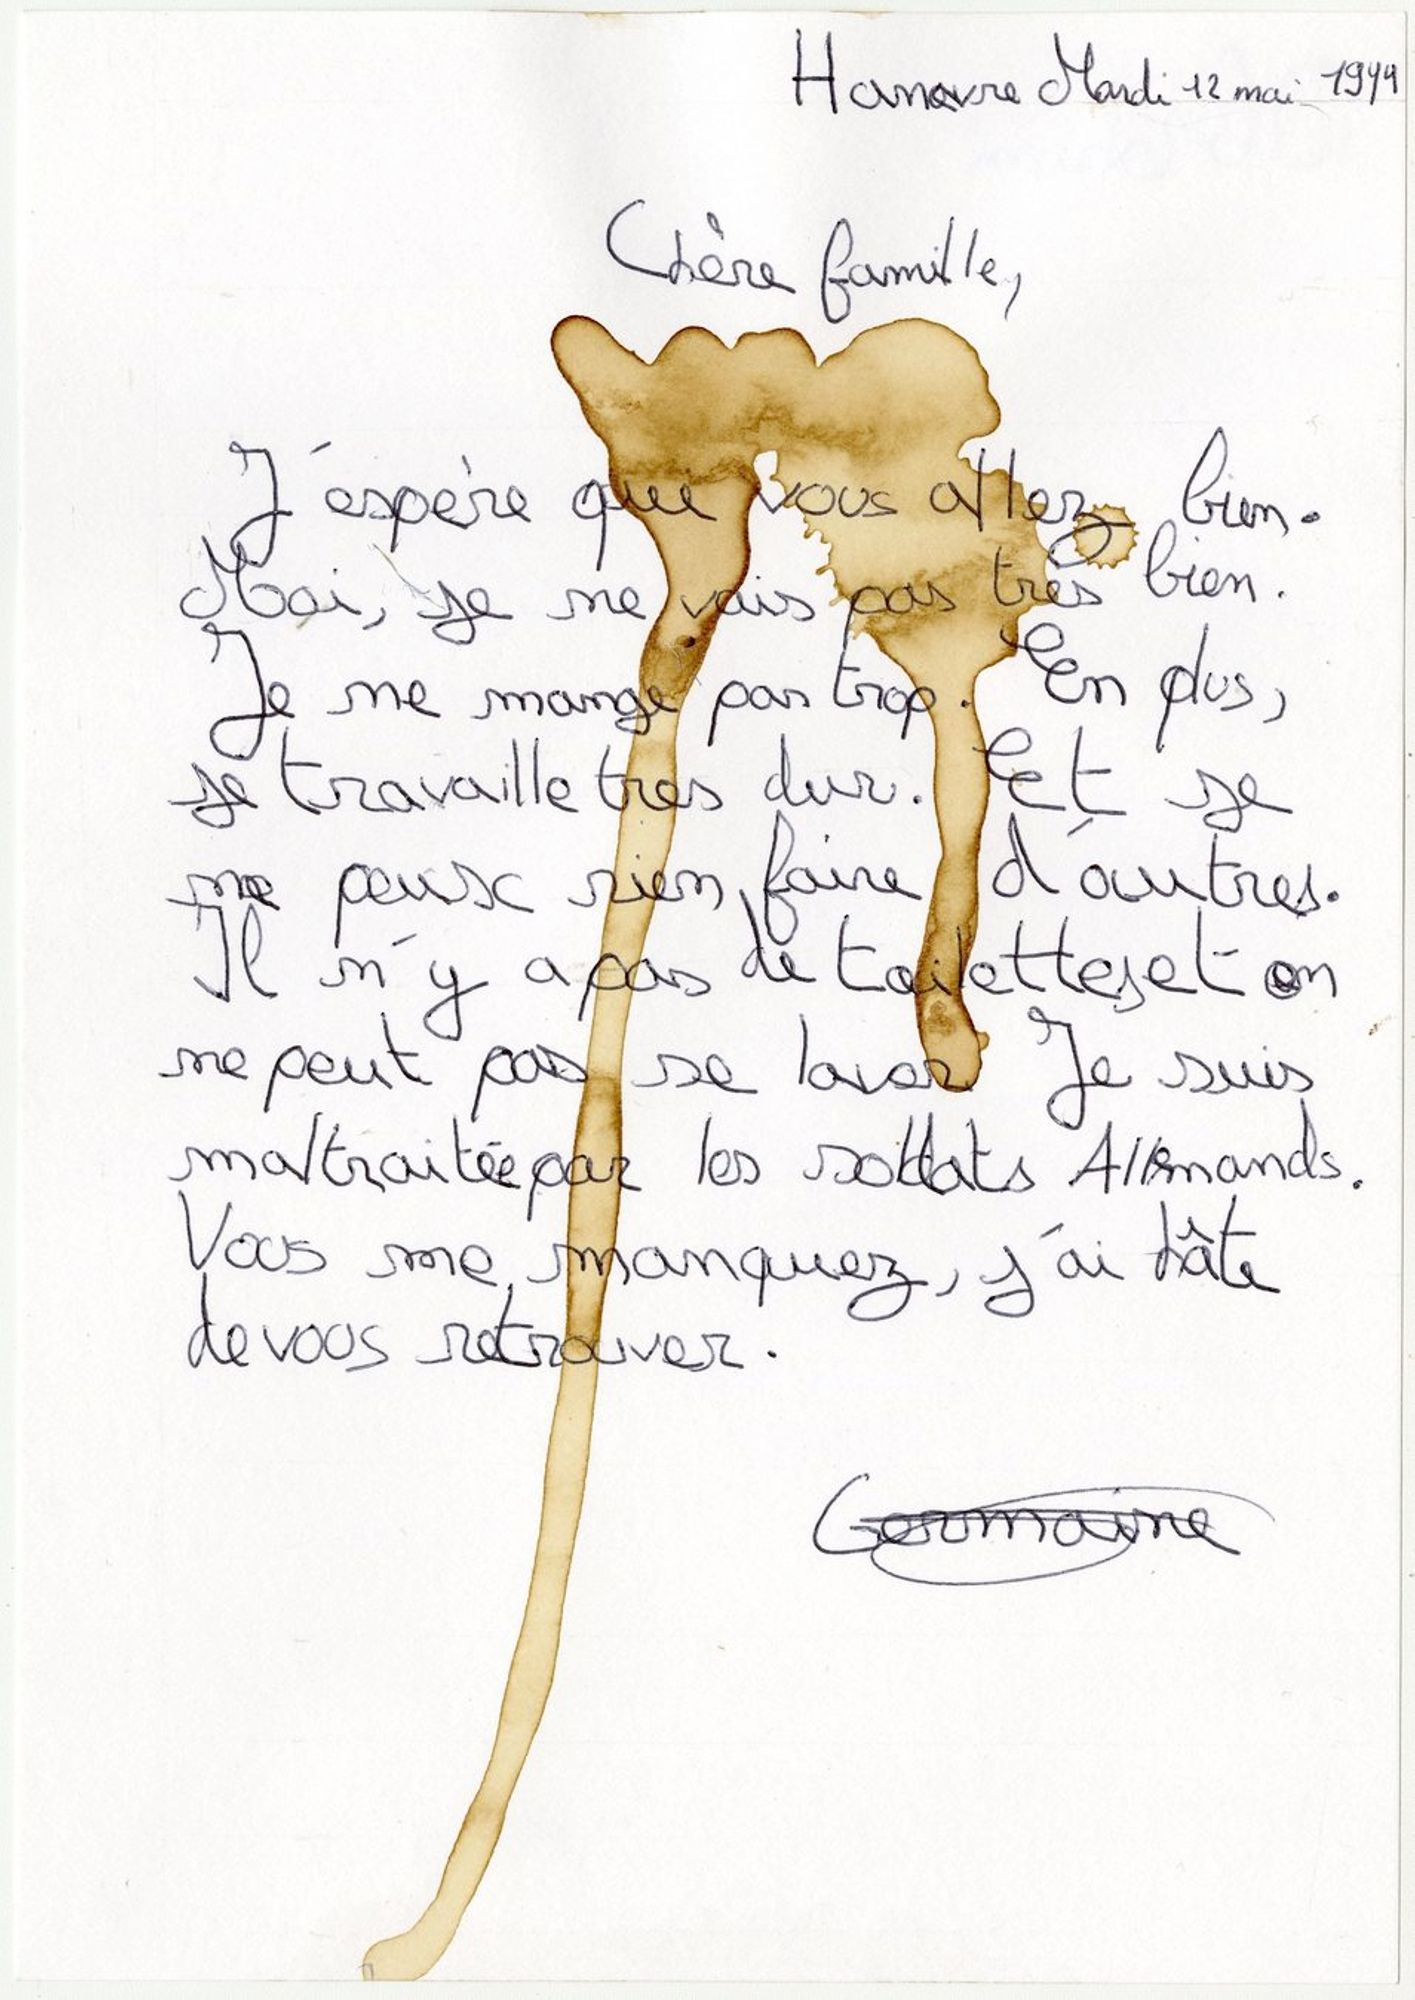 Hanovre Mardi 12 mai 1944
Chère famille,
J'espère que vous allez bien.
Moi, je ne vais pas très bien.
Je ne mange pas trop. En plus,
je travaille tres dur. Et je
ne peux rien faire d'autres.
Il n'y a pas de toilettes et on
ne peut pas se laver Je suis
maltraitée par les soldats Allemands.
Vous me manquez, j'ai hâte
de vous retrouver.
Germaine